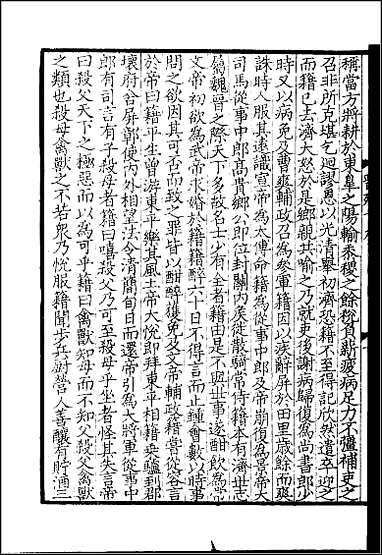 稱當方將耕於東臯之陽輸黍稷之餘稅負薪疲病足力不彊補吏之
召非所克堪乞迴謬恩以光清舉初濟恐籍不至得記欣然遣卒迎之
而籍已去濟大怒於是鄉親共喻之乃就吏後謝病歸復為尚書郎少
時又以病免及曹爽輔政召為參軍籍因以疾辭屏於田里歲餘而爽
誅時人服其遠識宣帝為太傅命籍為從事中郎及帝崩復為景帝大
司馬從事中郎高貴鄉公即位封關內侯徙散騎常侍籍本有濟世志
屬魏晉之際天下多故名士少有全者籍由是不與世事遂酣飲為常
文帝初欲為武帝求婚於籍籍醉六十日不得言而止鍾會數以時事
問之欲因其可否而致之罪皆以酣醉獲免及文帝輔政籍嘗從容言
於帝曰籍平生曾游東平樂其風土帝大悅即拜東平相籍乘驢到郡
壞府舍屏鄣使內外相望法令清簡旬日而還帝引為大將軍從事中
郎有司言有子殺母者籍曰嘻殺父乃可至殺母乎坐者怪其失言帝
曰殺父天下之極惡而以為可乎籍曰禽獸知母而不知父殺父禽獸
之類也殺母禽獸之不若眾乃悅服籍聞步兵廚營人善釀有貯酒三